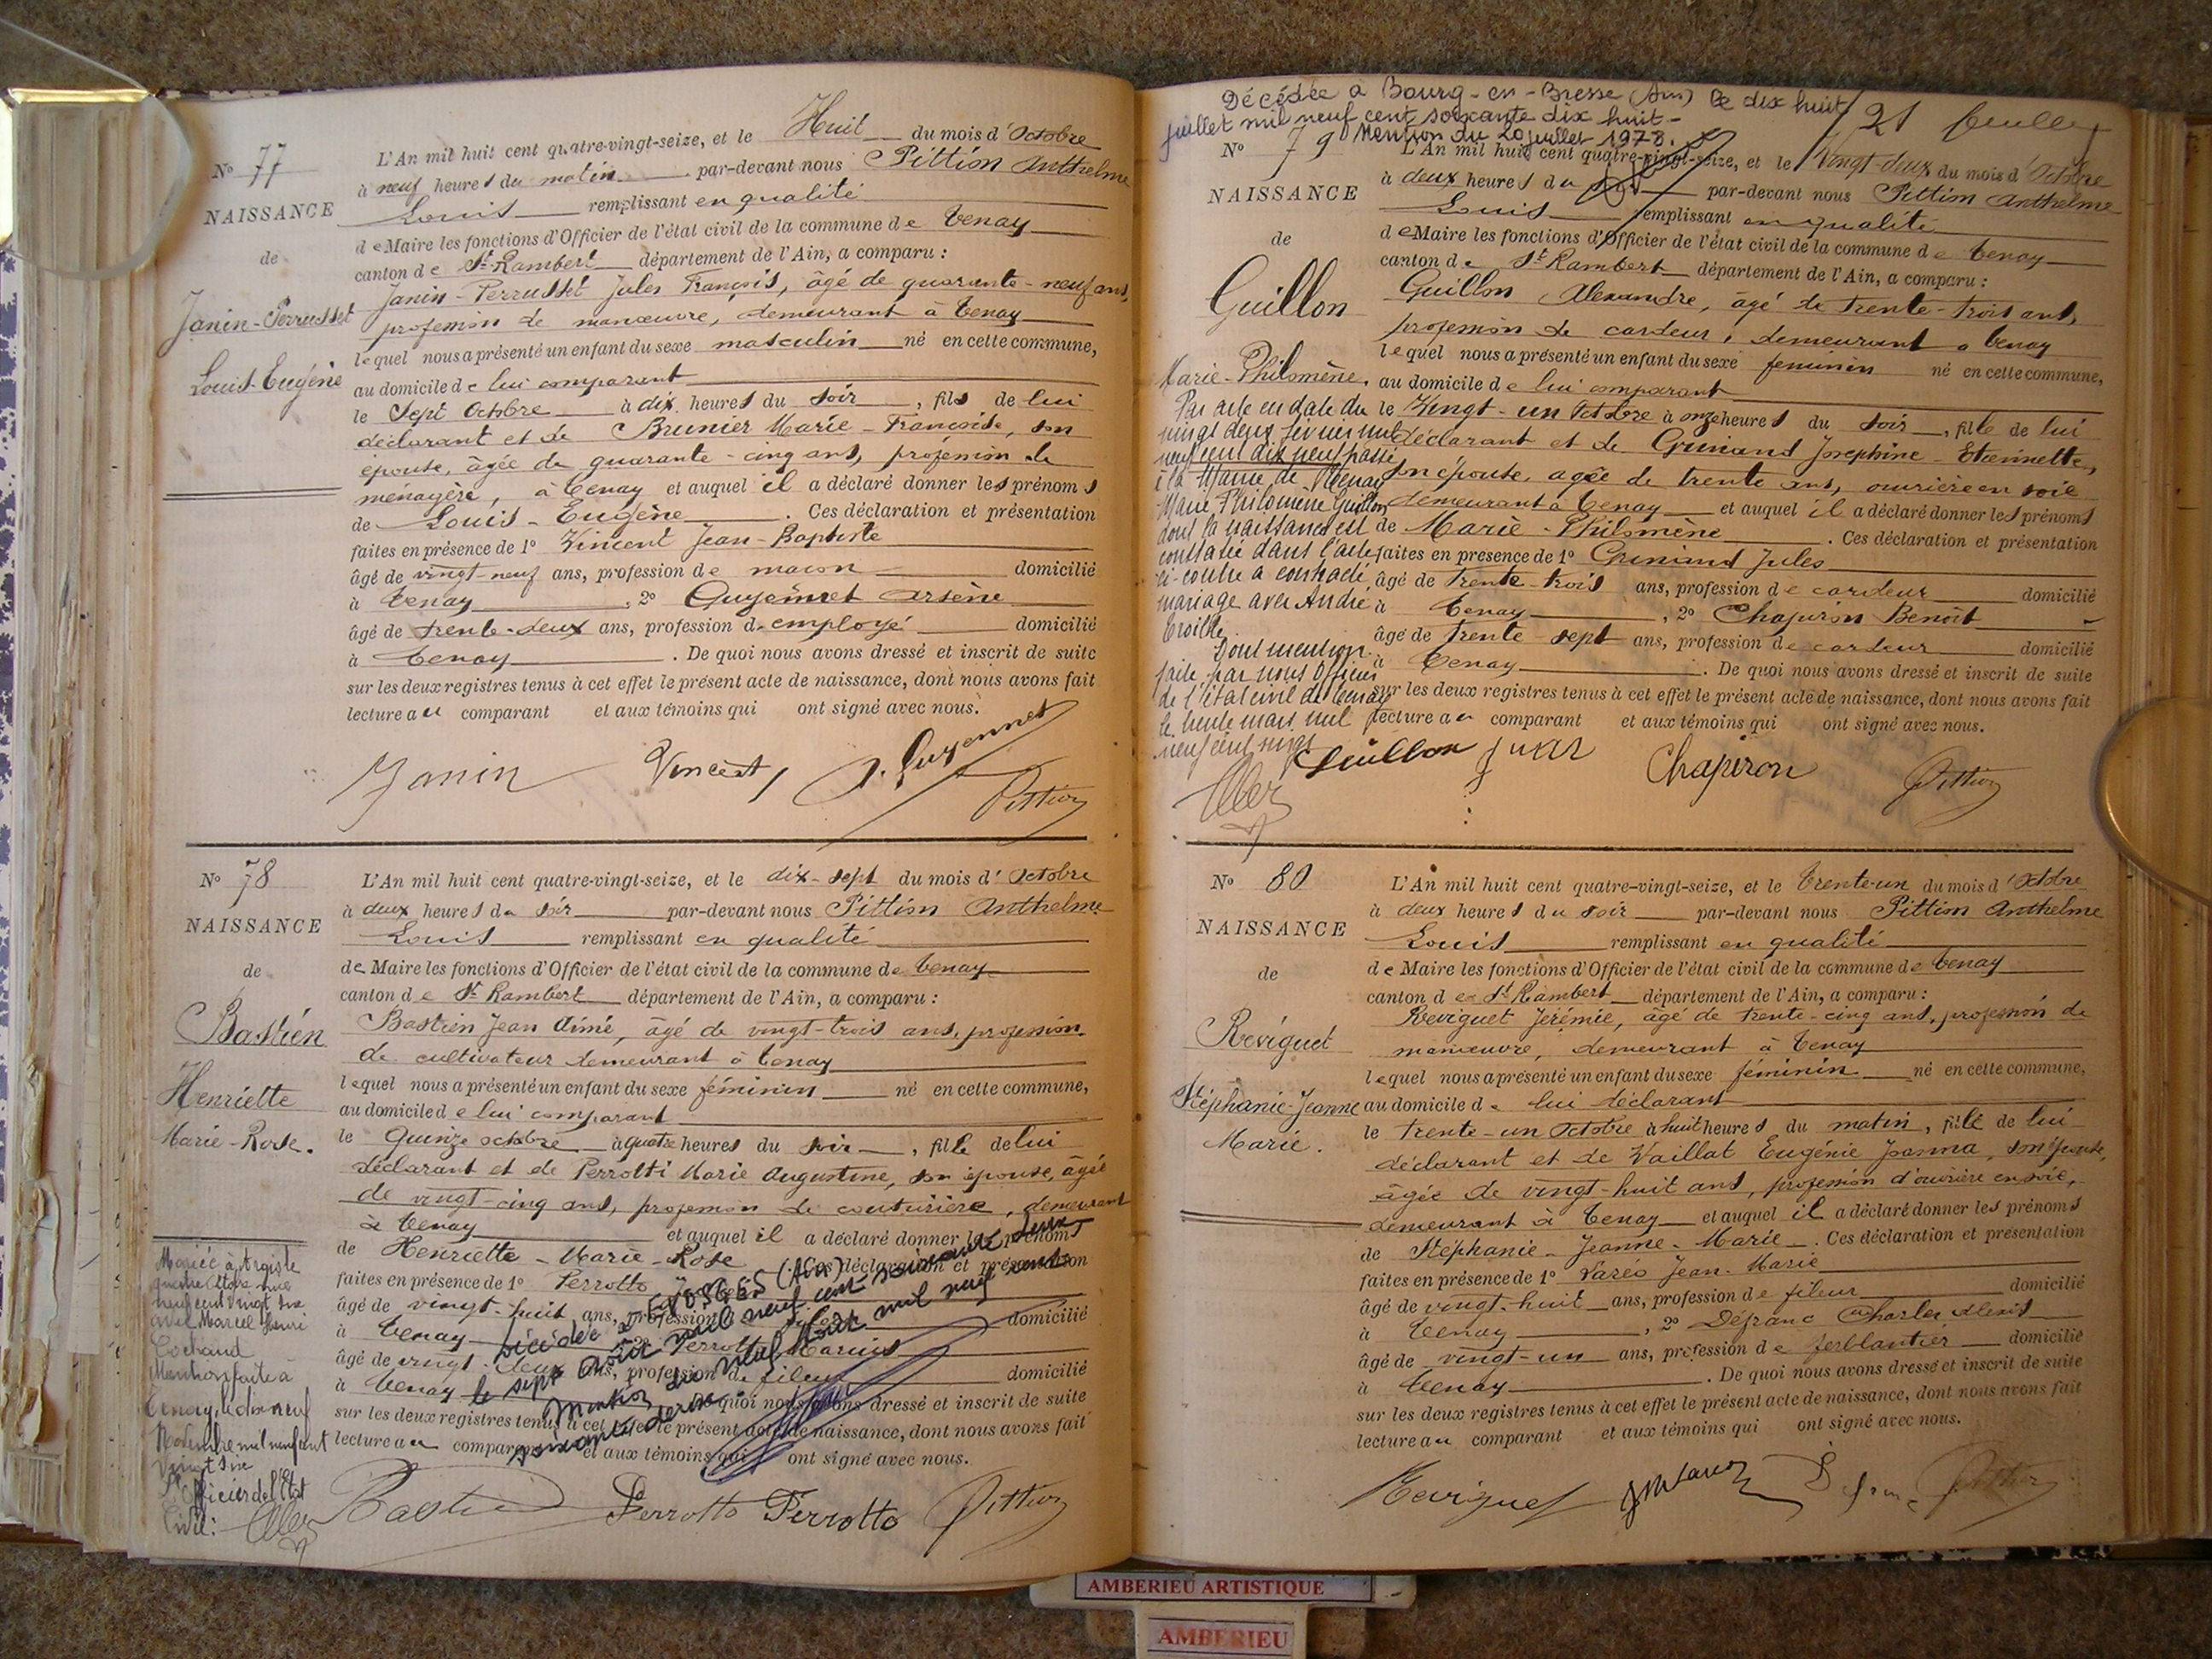 N° 77
NAISSANCE
de
Janin-Perrusset
Louis-Eugène
L'An mil huit cent quatre-vingt-seize, et le Huit du mois d'Octobre
à neuf heures du matin par-devant nous Pittion Anthelme
Louis remplissant en qualité
de Maire les fonctions d'Officier de l'état civil de la commune de Tenay
canton de St Rambert département de l'Ain, a comparu :
Janin-Perrusset Jules François, âgé de quarante-neuf ans,
profession de manœuvre, demeurant à Tenay
lequel nous a présenté un enfant du sexe masculin né en cette commune,
au domicile de lui comparant
le Sept Octobre à dix heures du soir, fils de lui
déclarant et de Brunier Marie-Françoise, son
épouse, âgée de quarante-cinq ans, profession de
ménagère, à Tenay et auquel il a déclaré donner les prénoms
de Louis-Eugène. Ces déclaration et présentation
faites en présence de 1° Vincent Jean-Baptiste
âgé de vingt-neuf ans, profession de maçon domicilié
à Tenay, 2° Guyennet Arsène
âgé de trente-deux ans, profession d'employé domicilié
à Tenay. De quoi nous avons dressé et inscrit de suite
sur les deux registres tenus à cet effet le présent acte de naissance, dont nous avons fait
lecture au comparant et aux témoins qui ont signé avec nous.
Janin Vincent A. Guyennet Pittion
N° 78
NAISSANCE
de
Bastien
Henriette
Marie-Rose.
L'An mil huit cent quatre-vingt-seize, et le dix-sept du mois d'Octobre
à deux heures du soir par-devant nous Pittion Anthelme
Louis remplissant en qualité
de Maire les fonctions d'Officier de l'état civil de la commune de Tenay
canton de St Rambert département de l'Ain, a comparu :
Bastien Jean Aimé, âgé de vingt-trois ans, profession
de cultivateur demeurant à Tenay
lequel nous a présenté un enfant du sexe féminin né en cette commune,
au domicile de lui comparant
le Quinze octobre à quatre heures du soir, fille de lui
déclarant et de Perrotti Marie Augustine, son épouse, âgée
de vingt-cinq ans, profession de couturière, demeurant
à Tenay et auquel il a déclaré donner les prénoms
de Henriette-Marie-Rose. Ces déclaration et présentation
faites en présence de 1° Perrotto
âgé de vingt-huit ans, profession
à Tenay 2° Perrotto Marius domicilié
âgé de vingt-deux ans, profession de fileur domicilié
à Tenay. De quoi nous avons dressé et inscrit de suite
sur les deux registres tenus à cet effet le présent acte de naissance, dont nous avons fait
lecture au comparant et aux témoins qui ont signé avec nous.
Décédée à EVOSGES (Ain)
le sept Août mil neuf cent soixante deux
Mention du neuf Août mil neuf cent
soixante deux
Mariée à
quatre Octobre mil
neuf cent vingt
avec Marcel Henri
Cochand
Mention faite à
Tenay, le dix neuf
Novembre mil neuf cent
vingt
L'Officier de l'Etat
Civil:
Bastien Perrotto Perrotto Pittion
Décédée à Bourg-en-Bresse (Ain) le dix huit
juillet mil neuf cent soixante dix huit-
Mention du 20 juillet 1978.
21
N° 79
NAISSANCE
de
Guillon
Marie-Philomène.
L'An mil huit cent quatre-vingt-seize, et le Vingt-deux du mois d'Octobre
à deux heures du soir par-devant nous Pittion Anthelme
Louis remplissant en qualité
de Maire les fonctions d'Officier de l'état civil de la commune de Tenay
canton de St Rambert département de l'Ain, a comparu :
Guillon Alexandre, âgé de trente-trois ans,
profession de cardeur, demeurant à Tenay
lequel nous a présenté un enfant du sexe féminin né en cette commune,
au domicile de lui comparant
le Vingt-un Octobre à onze heures du soir, fille de lui
déclarant et de Guinand Josephine-Etiennette,
son épouse, agée de trente ans, ouvrière en soie
demeurant à Tenay et auquel il a déclaré donner les prénoms
de Marie-Philomène. Ces déclaration et présentation
faites en présence de 1° Guinand Jules
âgé de trente-trois ans, profession de cardeur domicilié
à Tenay, 2° Chapiron Benoît
âgé de trente-sept ans, profession de cardeur domicilié
à Tenay. De quoi nous avons dressé et inscrit de suite
sur les deux registres tenus à cet effet le présent acte de naissance, dont nous avons fait
lecture au comparant et aux témoins qui ont signé avec nous.
Par acte en date du
vingt deux février mil
neuf cent dix neuf passé
à la Mairie de Tenay
Marie Philomène Guillon
dont la naissance est
constatée dans l'acte
ci-contre a contracté
mariage avec André
Dont mention
faite par nous Officier
de l'état civil de Tenay
le trente mars mil
neuf cent vingt
Guillon Chapiron Pittion
N° 80
NAISSANCE
de
Réviguet
Stéphanie-Jeanne
Marie.
L'An mil huit cent quatre-vingt-seize, et le trente-un du mois d'Octobre
à deux heures du soir par-devant nous Pittion Anthelme
Louis remplissant en qualité
de Maire les fonctions d'Officier de l'état civil de la commune de Tenay
canton de St Rambert département de l'Ain, a comparu :
Reviguet Jérémie, âgé de trente-cinq ans, profession de
manœuvre, demeurant à Tenay
lequel nous a présenté un enfant du sexe féminin né en cette commune,
au domicile de lui déclarant
le trente-un Octobre à huit heures du matin, fille de lui
déclarant et de Vaillat Eugénie Joanna, son épouse,
âgée de vingt-huit ans, profession d'ouvrière en soie,
demeurant à Tenay et auquel il a déclaré donner les prénoms
de Stéphanie-Jeanne-Marie. Ces déclaration et présentation
faites en présence de 1° Jean-Marie
âgé de vingt-huit ans, profession de fileur domicilié
à Tenay, 2° Défranc Charles Alexis
âgé de vingt-un ans, profession de ferblantier domicilié
à Tenay. De quoi nous avons dressé et inscrit de suite
sur les deux registres tenus à cet effet le présent acte de naissance, dont nous avons fait
lecture au comparant et aux témoins qui ont signé avec nous.
Reviguet Defranc Pittion
AMBERIEU ARTISTIQUE
AMBERIEU